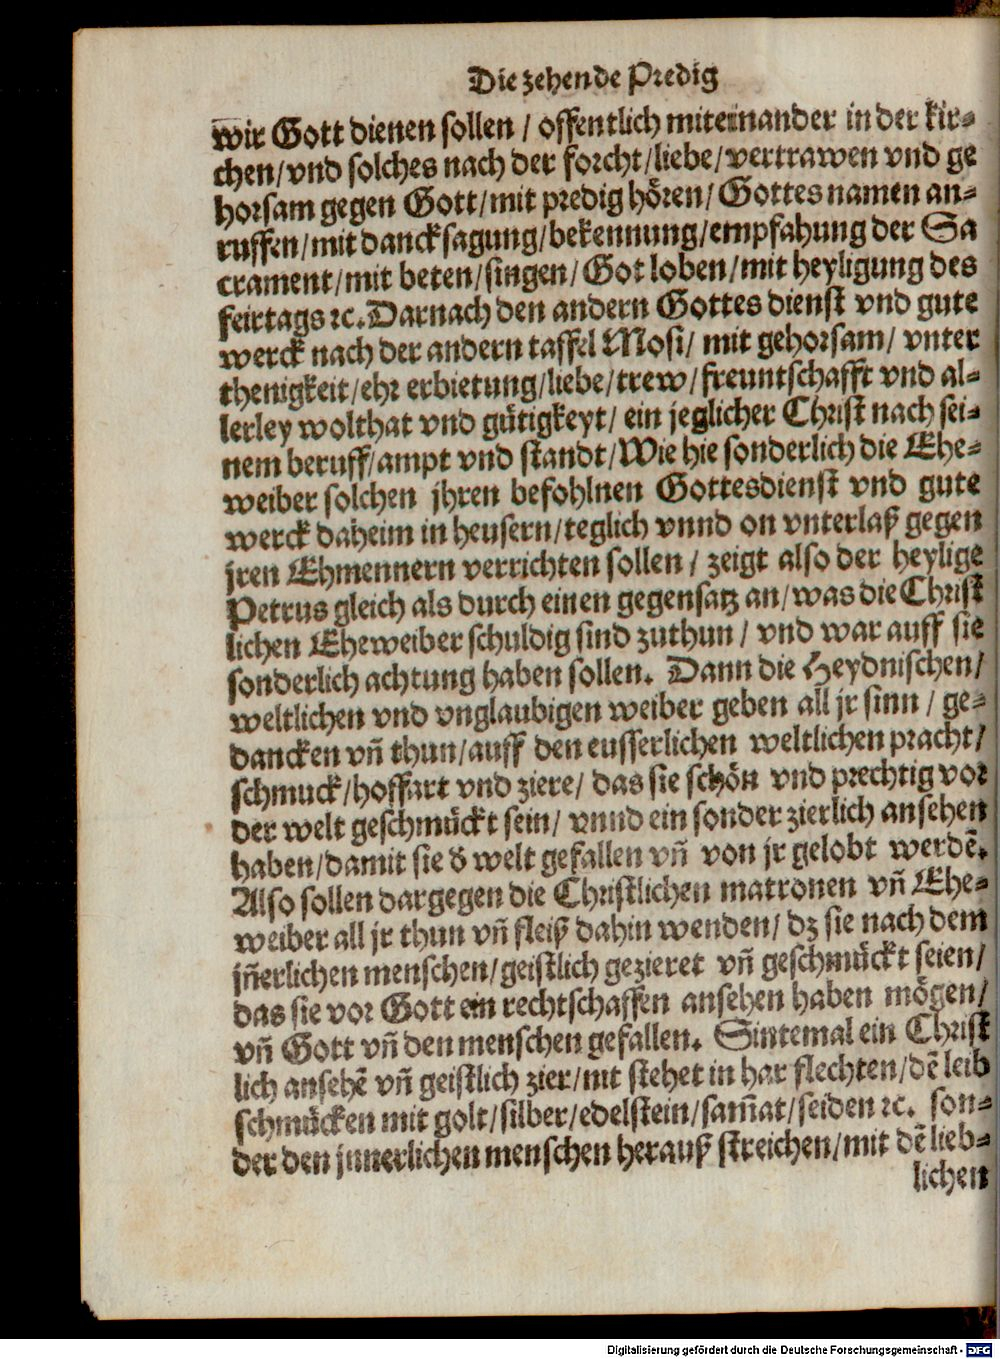 Die zehende Predig
wir Gott dienen sollen / offentlich miteinander in der kir-
chen/vnd solches nach der forcht/liebe/vertrawen vnd ge
horsam gegen Gott/mit predig hören/Gottes namen an-
ruffen/mit dancksagung/bekennung/empfahung der Sa
crament/mit beten/singen/Got loben/mit heyligung des
feirtags ꝛc. Darnach den andern Gottes dienst vnd gute
werck nach der andern taffel Mosi/ mit gehorsam/ vnter
thenigkeit/ehr erbietung/liebe/trew/freuntschafft vnd al-
lerley wolthat vnd gütigkeyt/ ein jeglicher Christ nach sei-
nem beruff/ampt vnd standt/Wie hie sonderlich die Ehe-
weiber solchen jhren befohlnen Gottesdienst vnd gute
werck daheim in heusern/teglich vnnd on vnterlaß gegen
jren Ehmennern verrichten sollen / zeigt also der heylige
Petrus gleich als durch einen gegensatz an/was die Christ
lichen Eheweiber schuldig sind zuthun / vnd war auff sie
sonderlich achtung haben sollen. Dann die Heydnischen/
weltlichen vnd vnglaubigen weiber geben all jr sinn / ge-
dancken vñ thun/auff den eusserlichen weltlichen pracht/
schmuck/hoffart vnd ziere/ das sie schön vnd prechtig vor
der welt geschmückt sein/ vnnd ein sonder zierlich ansehen
haben/damit sie d̕ welt gefallen vñ von jr gelobt werdẽ.
Also sollen dargegen die Christlichen matronen vñ Ehe-
weiber all jr thun vñ fleiß dahin wenden/ dz sie nach dem
jñerlichen menschen/geistlich gezieret vñ geschmückt seien/
das sie vor Gott ein rechtschaffen ansehen haben mögen/
vñ Gott vñ den menschen gefallen. Sintemal ein Christ
lich ansehẽ vñ geistlich zier/nit stehet in har flechten/dẽ leib
schmücken mit golt/silber/edelstein/sam̃at/seiden ꝛc. son-
der den jnnerlichen menschen herauß streichen/mit dẽ lieb-
lichen
Digitalisierung gefördert durch die Deutsche Forschungsgemeinschaft - DFG